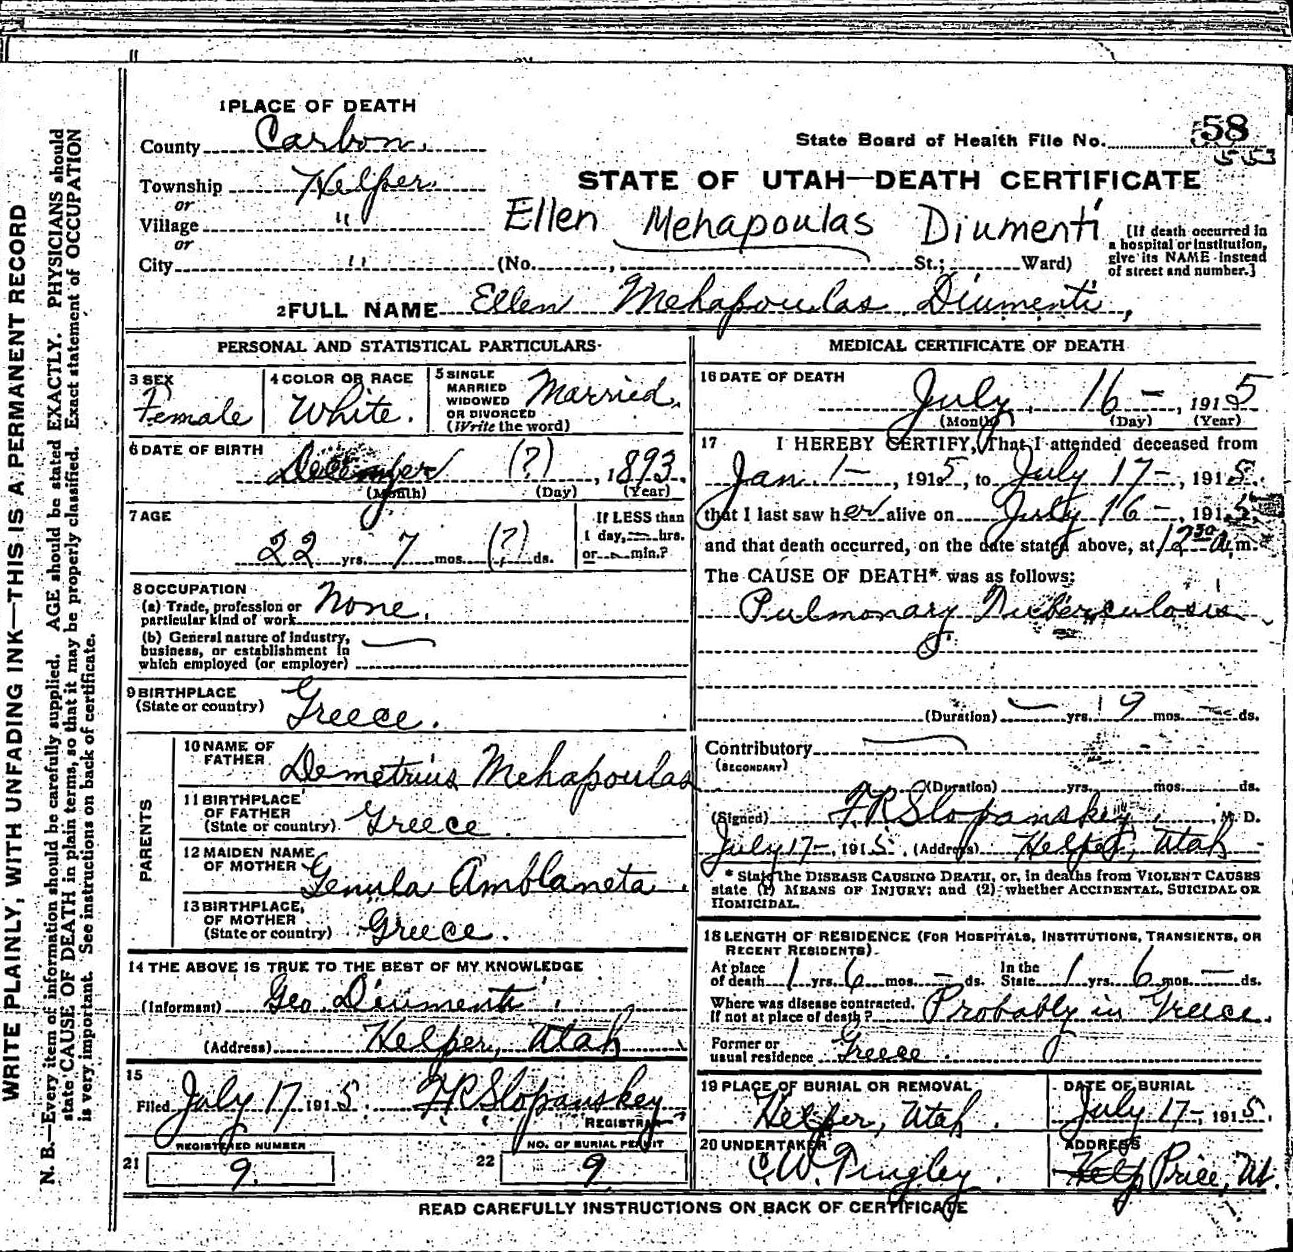 1 PLACE OF DEATH
County Carbon.
State Board of Health File No. 58
553
Township Helper.
or
STATE OF UTAH—DEATH CERTIFICATE
Village "
or
Ellen Mehapoulas Diumenti
City " (No. , St.; Ward)
[If death occurred in
a hospital or institution,
give its NAME instead
of street and number.]
2 FULL NAME Ellen Mehapoulas Diumenti,
PERSONAL AND STATISTICAL PARTICULARS
3 SEX
Female
4 COLOR OR RACE
White.
5 SINGLE
MARRIED
WIDOWED
OR DIVORCED
(Write the word)
Married.
6 DATE OF BIRTH
December (?), 1893.
(Month) (Day) (Year)
7 AGE
22 yrs. 7 mos. (?) ds.
If LESS than
1 day, — hrs.
or — min.?
8 OCCUPATION
(a) Trade, profession or
particular kind of work None.
(b) General nature of industry,
business, or establishment in
which employed (or employer)
9 BIRTHPLACE
(State or country) Greece.
PARENTS
10 NAME OF
FATHER Demetrius Mehapoulas
11 BIRTHPLACE
OF FATHER
(State or country) Greece.
12 MAIDEN NAME
OF MOTHER Genula Amblaneta.
13 BIRTHPLACE,
OF MOTHER
(State or country) Greece.
14 THE ABOVE IS TRUE TO THE BEST OF MY KNOWLEDGE
(Informant) Geo Diumenti.
(Address) Helper, Utah
15
Filed July 17 1915. F R Slopanskey
REGISTRAR
REGISTERED NUMBER
21 9.
NO. OF BURIAL PERMIT
22 9.
MEDICAL CERTIFICATE OF DEATH
16 DATE OF DEATH
July, 16 —, 1915
(Month) (Day) (Year)
17 I HEREBY CERTIFY, That I attended deceased from
Jan. 1 —, 1915, to July 17 —, 1915.
that I last saw her alive on July 16 —, 1915,
and that death occurred, on the date stated above, at 12 30 A.m.
The CAUSE OF DEATH* was as follows:
Pulmonary Tuberculosis
(Duration) — yrs. 9 mos. — ds.
Contributory
(SECONDARY)
(Duration) yrs. mos. ds.
(Signed) F R Slopanskey, M. D.
July 17 —, 1915. (Address) Helper, Utah
* State the DISEASE CAUSING DEATH, or, in deaths from VIOLENT CAUSES
state (1) MEANS OF INJURY; and (2) whether ACCIDENTAL, SUICIDAL OR
HOMICIDAL.
18 LENGTH OF RESIDENCE (FOR HOSPITALS, INSTITUTIONS, TRANSIENTS, OR
RECENT RESIDENTS).
At place
of death 1 yrs. 6 mos. — ds.
In the
State 1 yrs. 6 mos. — ds.
Where was disease contracted,
If not at place of death? Probably in Greece.
Former or
usual residence Greece.
19 PLACE OF BURIAL OR REMOVAL
Helper, Utah.
DATE OF BURIAL
July 17 — 1915.
20 UNDERTAKER
C W. Pingley.
ADDRESS
Help Price, Ut.
READ CAREFULLY INSTRUCTIONS ON BACK OF CERTIFICATE
WRITE PLAINLY, WITH UNFADING INK—THIS IS A PERMANENT RECORD
N. B.—Every item of information should be carefully supplied. AGE should be stated EXACTLY. PHYSICIANS should
state CAUSE OF DEATH in plain terms, so that it may be properly classified. Exact statement of OCCUPATION
is very important. See instructions on back of certificate.